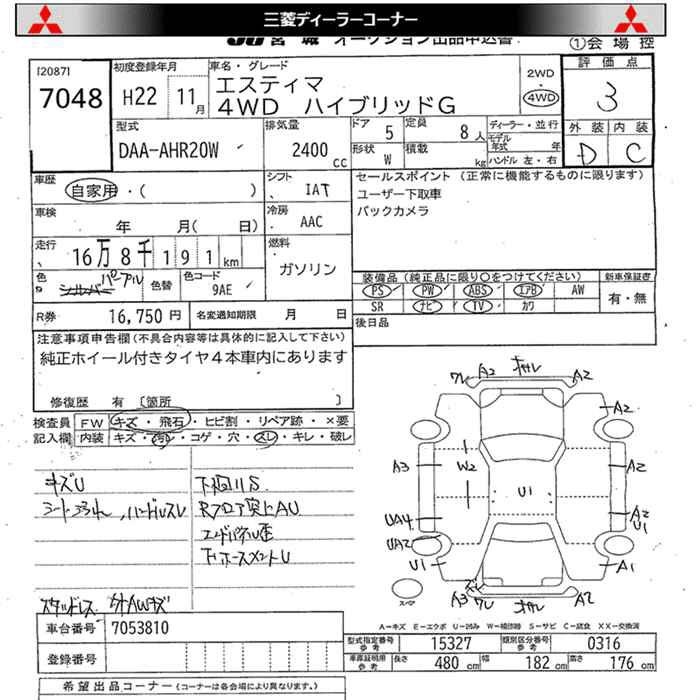 三菱ディーラーコーナー
JU宮城 オークション出品申込書 ①会場控
[2087]
7048
初度登録年月
H22 11月
車名・グレード
エスティマ
4WD ハイブリッドG
2WD
4WD
評価点
3
外装 内装
D C
型式
DAA-AHR20W
排気量
2400cc
ドア 5
定員 8人
形状 W
積載 kg
ディーラー・並行
モデル年式 年
ハンドル 左・右
車歴
自家用・( )
シフト
IAT
セールスポイント (正常に機能するものに限ります)
ユーザー下取車
バックカメラ
車検
年 月( 日)
冷房
AAC
走行
16万8千191km
燃料
ガソリン
色
シルバー パープル
色替
色コード
9AE
装備品(純正品に限り○をつけてください)
PS PW ABS エアB AW
SR ナビ TV カワ
新車保証書
有・無
R券 16,750円
名変通知期限 月 日
後日品
注意事項申告欄(不具合内容等は具体的に記入して下さい)
純正ホイール付きタイヤ4本車内にあります
修復歴 有 [箇所 ]
検査員記入欄
FW キズ・飛石・ヒビ割・リペア跡・×要
内装 キズ・汚レ・コゲ・穴・スレ・キレ・破レ
キズU
シートヨゴレ、ハンドルスレ
下廻りS
Rフロア突上AU
エンドパネル歪
スタッドレス
車台番号 7053810
登録番号
希望出品コーナー(コーナーは各会場により異なります。)
A2
A2
A2
A3
W2
U1
A2
UA4
A2
U1
UA2
U1
A1
A3
A2
スペア
A-キズ E-エクボ U-凹み W-補修跡 S-サビ C-腐食 XX-交換済
型式指定番号参考 15327
類別区分番号参考 0316
車庫証明用参考 長さ 480cm 幅 182cm 高さ 176cm